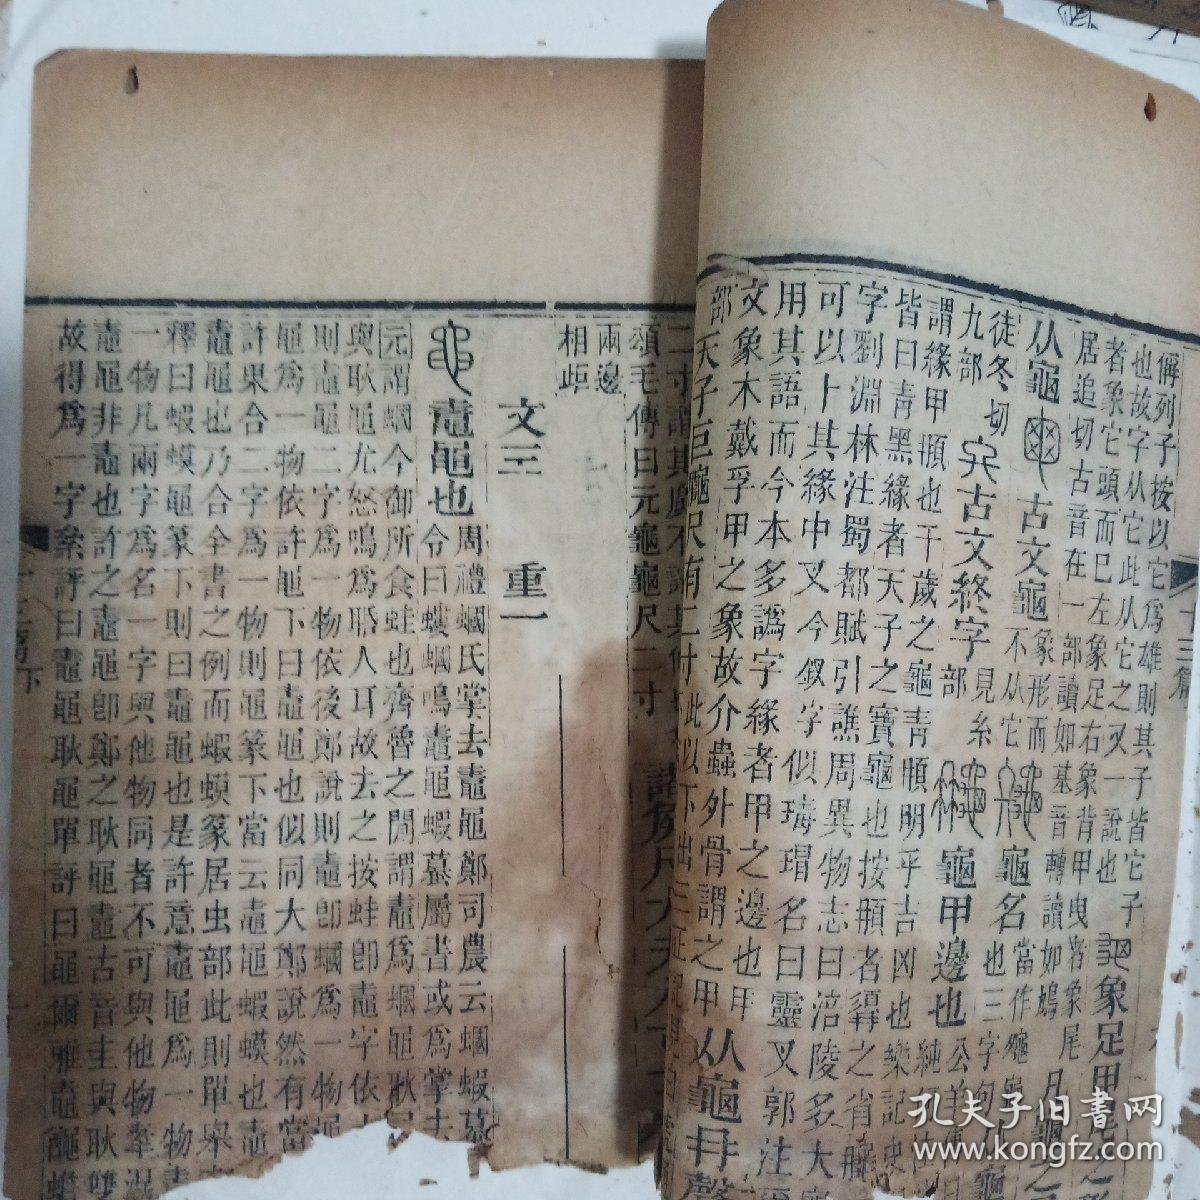 偁列子按以它爲雄則其子皆它子
也故字从它此从它之又一說也
者象它頭而已左象足右象背甲曳者象尾
象足甲尾之
居追切古音在一部讀如基音轉讀如鳩凡龜之
从龜
古文龜
象形而
不从它
龜名
當作
也三字句
徒冬切
九部
古文終字
見糸
部
龜甲邊也
公羊
純緣
謂緣甲䫇也千歲之龜青䫇明乎吉凶也樂記史
皆曰青黑緣者天子之寶龜也按䫇者䫇之省
字劉淵林注蜀都賦引譙周異物志曰涪陵多大
可以卜其緣中叉今釵字似瑇瑁名曰靈叉郭注
用其語而今本多譌字緣者甲之邊也甲
文象木戴孚甲之象故介蟲外骨謂之甲
从龜冄聲
部
天子巨龜尺有二寸此以下出三正記
二寸謂其
頌毛傳曰元龜龜尺二寸
諸矦尺大夫八寸
兩邊
相距
文三　重一
鼃黽也
周禮蟈氏掌去鼃黽鄭司農云蟈蝦蟇
令曰螻蟈鳴鼃黽蝦蟇屬書或爲掌去
元謂蟈今御所食蛙也齊魯之閒謂鼃爲蟈黽耿黽
與耿黽尤怒鳴爲聒人耳故去之按蛙卽鼃字依
則鼃黽二字爲一物依後鄭說則鼃卽蟈爲一物黽
黽爲一物依許黽下曰鼃黽也似同大鄭說然有當
許果合二字爲一物則黽篆下當云鼃黽蝦蟆也鼃
鼃黽也乃合全書之例而蝦蟆篆居虫部此則單舉
釋曰蝦蟆黽篆下則曰鼃黽也是許意鼃黽爲一物
一物凡兩字爲名一字與他物同者不可與他物牽混
鼃黽非鼃也許之鼃黽卽鄭之耿黽鼃古音圭與耿雙
故得爲一字案評曰鼃黽耿黽單評曰黽爾雅鼃
十三篇
十三篇下
孔夫子旧書网
www.kongfz.com